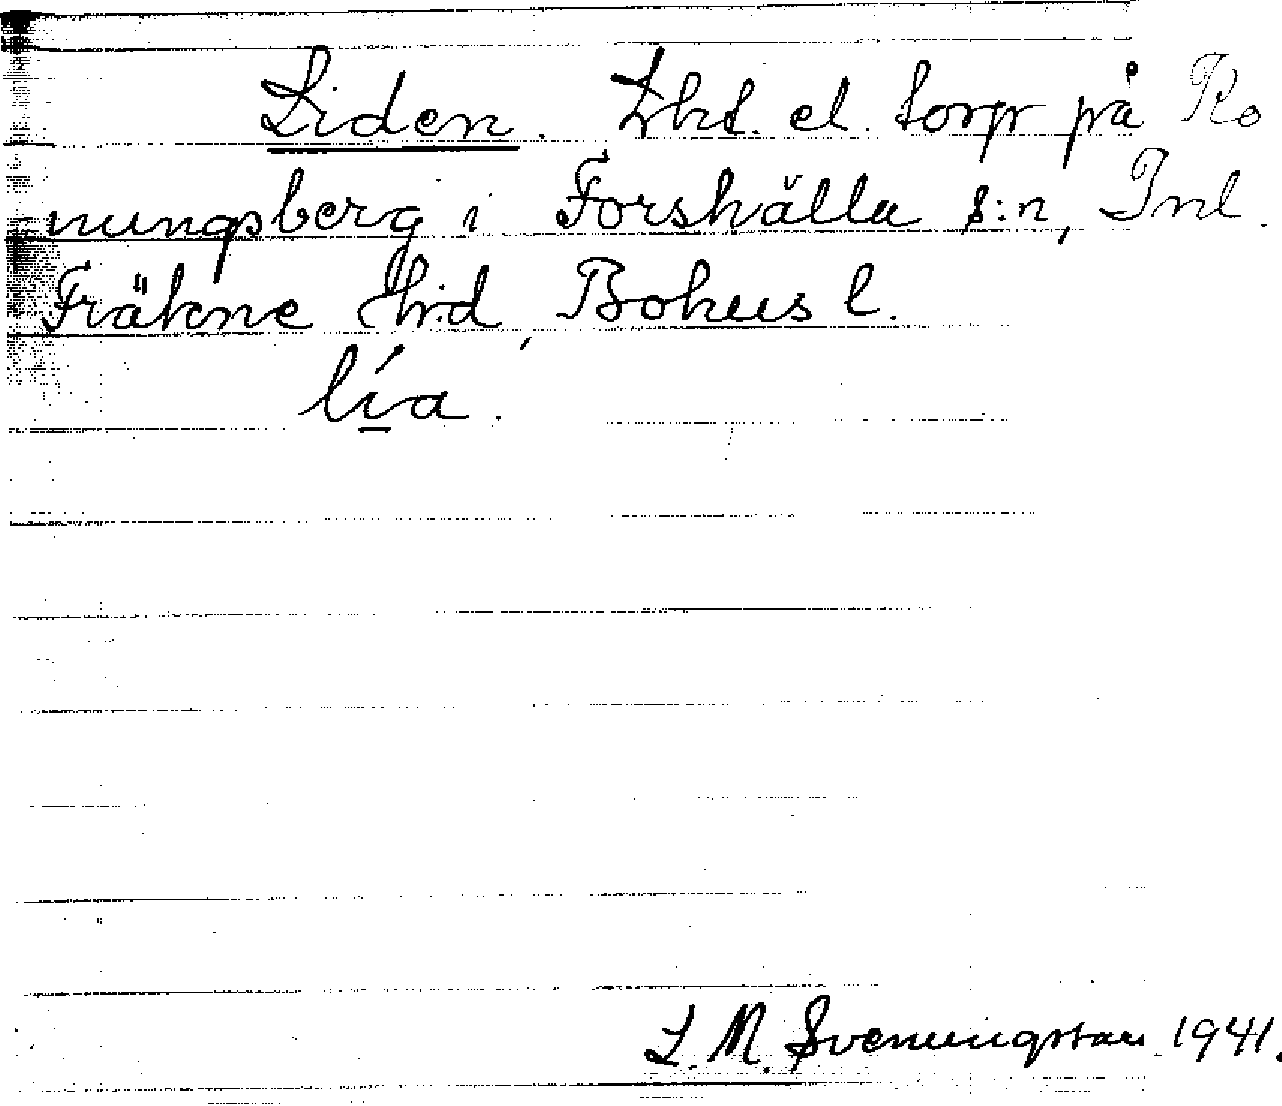 Liden. Lht. el. torp på Ro
nungsberg i Forshälla s:n, Inl.
Fräkne hd, Bohusl.
lía.
L. M. Svenungsson 1941.